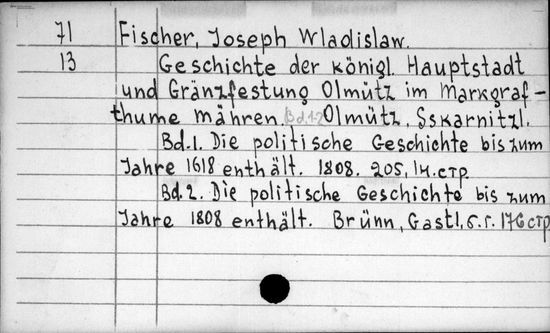 71 Fischer, Joseph Wladislaw.
13 Geschichte der königl. Hauptstadt
und Gränzfestung Olmütz im Markgraf-
thume Mähren. Bd.1-2 Olmütz, Sskarnitzl.
Bd.1. Die politische Geschichte bis zum
Jahre 1618 enthält. 1808. 205, 14.стр.
Bd.2. Die politische Geschichte bis zum
Jahre 1808 enthält. Brünn, Gastl, б.г. 176 стр